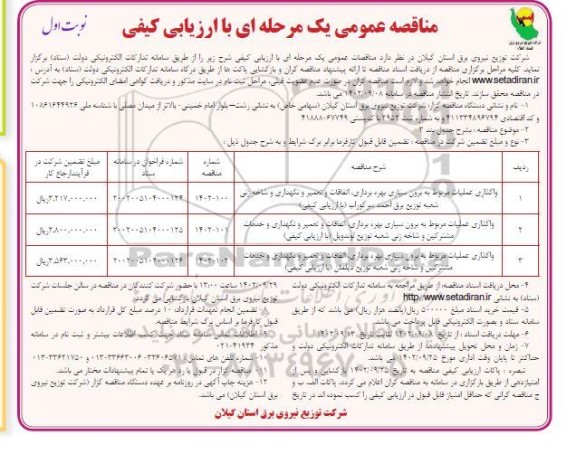 مناقصه عمومی یک مرحله ای با ارزیابی کیفی
نوبت اول
شرکت توزیع نیروی برق استان گیلان در نظر دارد مناقصات عمومی یک مرحله ای با ارزیابی کیفی شرح زیر را از طریق سامانه تدارکات الکترونیکی دولت (ستاد) برگزار
نماید. کلیه مراحل برگزاری مناقصه از دریافت اسناد مناقصه تا ارائه پیشنهاد مناقصه گران و بازگشایی پاکت ها از طریق درگاه سامانه تدارکات الکترونیکی دولت (ستاد) به آدرس :
www.setadiran.ir انجام خواهد شد و لازم است مناقصه گران در صورت عدم عضویت قبلی، مراحل ثبت نام در سایت مذکور و دریافت گواهی امضای الکترونیکی را جهت شرکت
در مناقصه محقق سازند. تاریخ انتشار مناقصه در سامانه ۱۴۰۲/۰۹/۰۸ می باشد.
۱- نام و نشانی دستگاه مناقصه گزار: شرکت توزیع نیروی برق استان گیلان (سهامی خاص) به نشانی رشت– بلوار امام خمینی- بالاتر از میدان مصلی با شناسه ملی ۱۰۸۶۱۶۴۴۹۲۶
و کد اقتصادی ۴۱۱۳۳۴۸۹۶۷۹۴ و به شماره ثبت ۲۹۵۲ با کدپستی ۶۷۷۴۹-۴۱۸۸۸
۲- موضوع مناقصه : بشرح جدول بند ۳
۳- نوع و مبلغ تضمین شرکت در مناقصه: تضمین قابل قبول کارفرما برابر برگ شرایط و به شرح جدول ذیل:
ردیف شرح مناقصه شماره مناقصه شماره فراخوان در سامانه ستاد مبلغ تضمین شرکت در فرآیند ارجاع کار
۱ واگذاری عملیات مربوط به برون سپاری بهره برداری، اتفاقات و تعمیر و نگهداری و شاخه زنی شعبه توزیع برق احمد سرگوراب (با ارزیابی کیفی) ۱۴۰۲-۱۰۰ ۲۰۰۲۰۰۵۱۰۴۰۰۰۱۲۴ ۲,۲۱۷,۰۰۰,۰۰۰ریال
۲ واگذاری عملیات مربوط به برون سپاری بهره برداری، اتفاقات و تعمیر و نگهداری و خدمات مشترکین و شاخه زنی شعبه توزیع لوندویل (با ارزیابی کیفی) ۱۴۰۲-۱۰۱ ۲۰۰۲۰۰۵۱۰۴۰۰۰۱۲۵ ۲,۸۰۰,۰۰۰,۰۰۰ریال
۳ واگذاری عملیات مربوط به برون سپاری بهره برداری، اتفاقات و تعمیر و نگهداری و خدمات مشترکین و شاخه زنی شعبه توزیع دیلمان (با ارزیابی کیفی) ۱۴۰۲-۱۰۲ ۳,۵۶۳,۰۰۰,۰۰۰ریال
۴- محل دریافت اسناد مناقصه: از طریق مراجعه به سامانه تدارکات الکترونیکی دولت
(ستاد) به نشانی http://www.setadiran.ir
۵- قیمت خرید اسناد مبلغ ۵۰۰۰۰۰ ریال(پانصد هزار ریال) می باشد که از طریق
سامانه ستاد و بصورت الکترونیکی قابل پرداخت می باشد.
۶- مهلت دریافت اسناد : از تاریخ ۱۴۰۲/۰۹/۰۸ لغایت تاریخ ۱۴۰۲/۰۹/۱۲ می باشد.
۷- زمان و محل تحویل پیشنهادها: از طریق سامانه تدارکات الکترونیکی دولت و
حداکثر تا پایان وقت اداری مورخ ۱۴۰۲/۰۹/۲۵ می باشد.
تبصره : پاکات ارزیابی کیفی مناقصه به تاریخ ۱۴۰۲/۰۹/۲۵ بازگشایی و پس از
امتیازدهی از طریق بارگزاری در سامانه به مناقصه گران اعلام می گردد. پاکات الف، ب و
ج مناقصه گرانی که حداقل امتیاز قابل قبول در ارزیابی کیفی را کسب نموده اند در تاریخ
۱۴۰۲/۰۹/۲۹ ساعت ۱۳:۰۰ با حضور شرکت کنندگان در مناقصه در سالن جلسات شرکت
توزیع نیروی برق استان گیلان بازگشایی می گردد.
تضمین انجام تعهدات قرارداد: ۱۰ درصد مبلغ کل قرارداد به صورت تضمین قابل
قبول کارفرما بر اساس برگ شرایط مناقصه.
شرکت توزیع نیروی برق استان گیلان